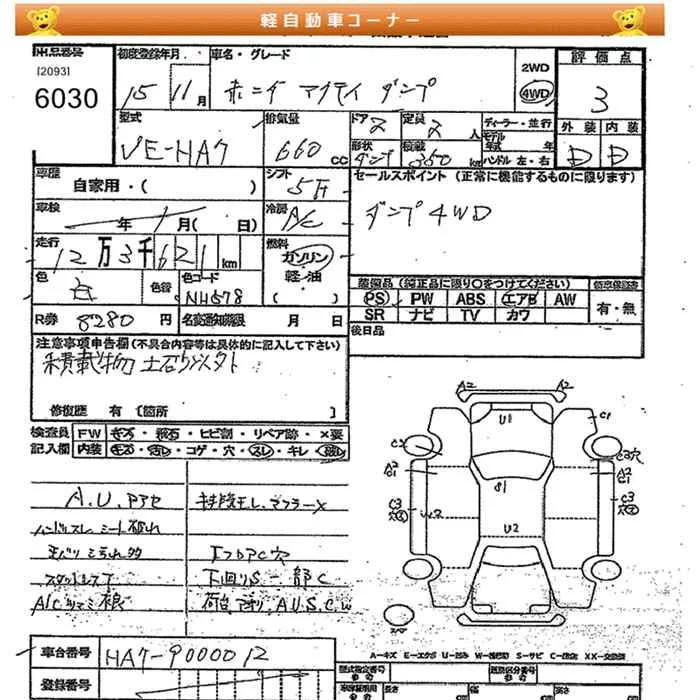 軽自動車コーナー
出品番号
[2093]
6030
初度登録年月
15 11月
車名・グレード
ホンダ アクティ ダンプ
2WD
4WD
評価点
3
型式
VE-HA7
排気量
660 CC
ドア 2
定員 2人
形状 ダンプ
積載 350 kg
ディーラー・並行
モデル年式 年
ハンドル 左・右
外装 内装
D D
車歴
自家用・( )
シフト
5F
セールスポイント (正常に機能するものに限ります)
ダンプ 4WD
車検
年 月( 日)
冷房
A/C
走行
12万3千621km
燃料
ガソリン
軽・油
( )
色
白
色替
色コード
NH578
装備品 (純正品に限り○をつけてください)
PS PW ABS エアB AW
SR ナビ TV カワ
保証書
有・無
R券 8280 円
名変通知期限 月 日
後日品
注意事項申告欄 (不具合内容等は具体的に記入して下さい)
積載物 土石以外
修復歴 有 [箇所 ]
検査員 FW キズ・飛石・ヒビ割・リペア跡・×要
記入欄 内装 キズ・汚レ・コゲ・穴・スレ・キレ・破レ
A.U.アセ
ハンドルスレ シート破れ
スタッドレス
A/Cツマミ破
マフラーX
エプロンC穴
下回りS 一部C
荷台 A.U.S.C.W
A2 A2
U1
C1
C2
C3穴
A2
C1
A2
C1
S1
C3
穴
W2
C3
穴
U2
スペア
A-キズ E-エクボ U-凹ミ W-補修跡 S-サビ C-腐食 XX-交換済
車台番号
HA7-9000012
登録番号
型式指定番号
参考
類別区分番号
参考
長さ
cm
幅
cm
高さ
cm